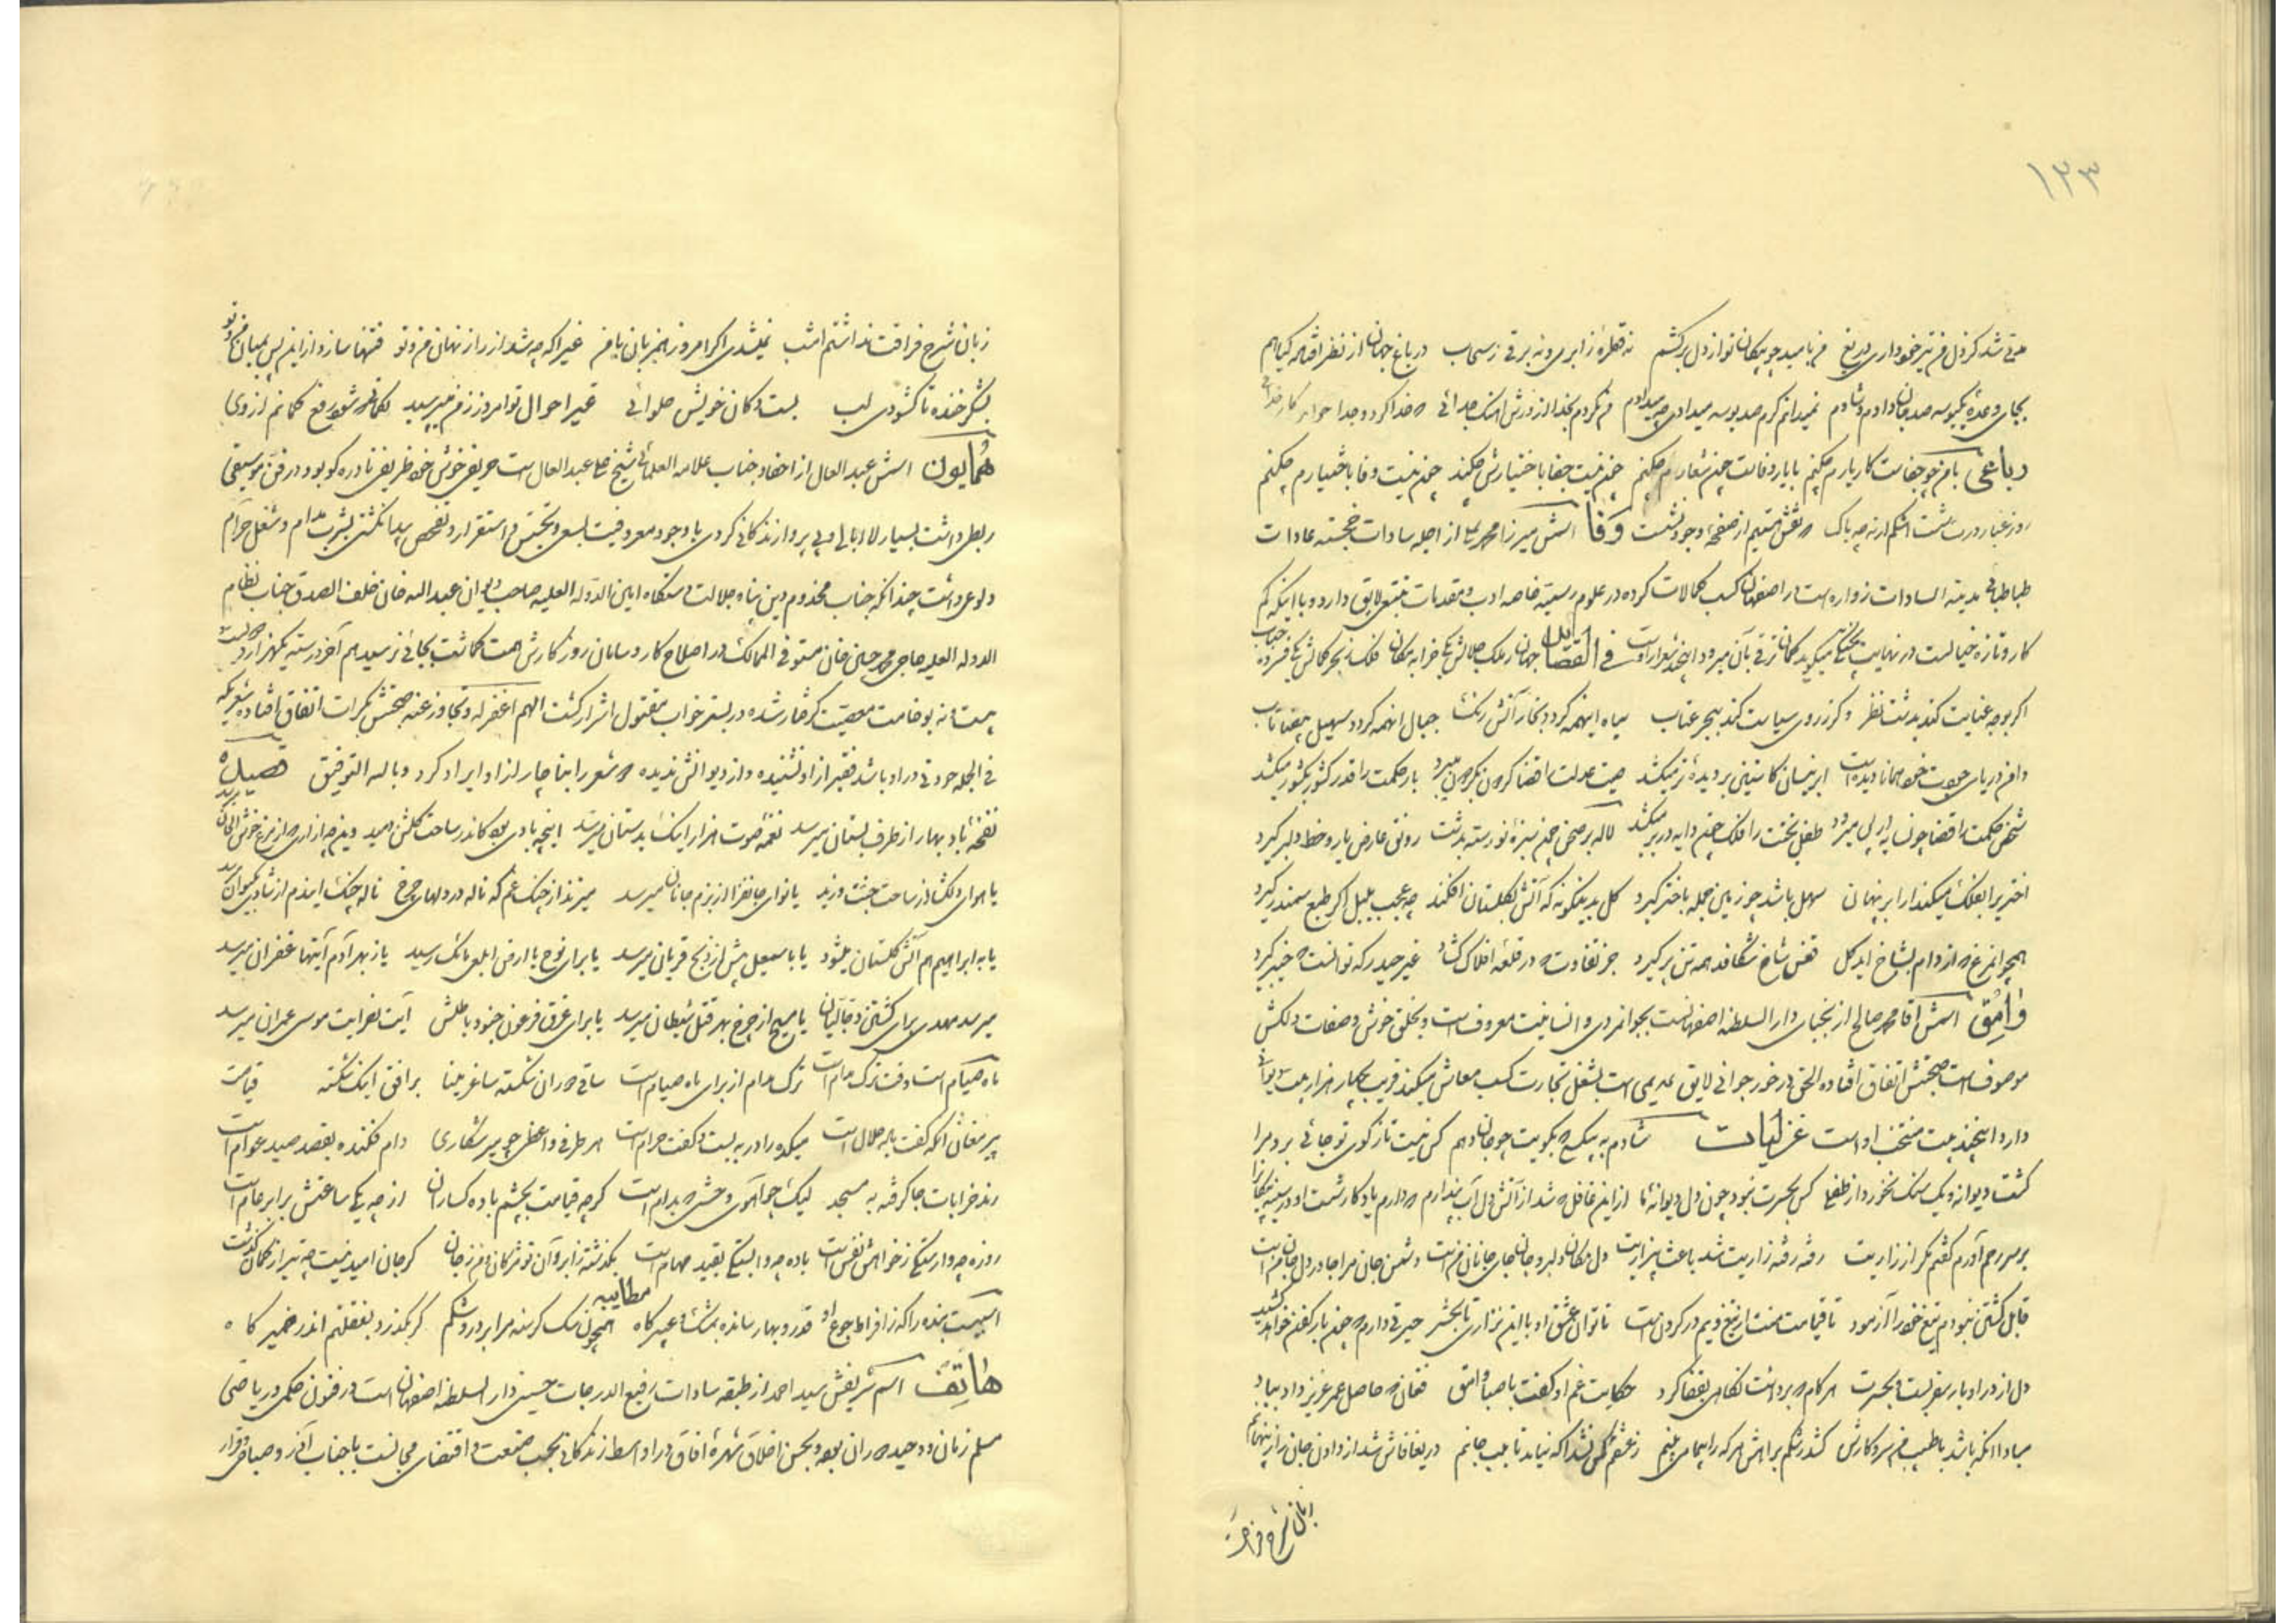 ۱۳۳
مدتی شد کز دل من تیر خود داری دریغ من بامید چو پیکان تو از دل برکشم نه قطرهٔ ز ابری و نه برقی ز سحاب در باغ جهان از نظر افتاده کیاهم
بجای وعدهٔ یکبوسه صد جان دادم و شادم نمیدانم کرم صد بوسه میدادی چه میدادم
رباعی با من چو جفاست کار یارم چکنم با یار وفاست چون شعارم چکنم چون نیست جفا باختیارش چکند چون نیست وفا باختیارم چکنم
روز غبار درت شست اشکم ارنه چه باک که نقش هستیم از صفحهٔ وجود نشست وفا اسمش میرزا محمد علی از اجلهٔ سادات خجسته عادات
طباطبائی مدینة السادات زواره است در اصفهان کسب کمالات کرده در علوم رسمیه خاصه ادب و مقدمات تتبعی لایق دارد و با اینکه کم
کار و تازه خیالست در نهایت پختگی میکوید کمان ترقی بآن میرود اینچند شعر ازوست فی القصاید جهان ز ملک جلالش یکی خرابه مکان فلک ز بحر کمالش یکی فسرده حباب
اکر بوجه عنایت کند بدشت نظر وکر ز روی سیاست کند ببحر عتاب میاه اینهمه کردد بخار آتش رنک جبال آنهمه کردد سهیل بیضا تاب
دامن دریای جودت خود همانا دیده است ابر نیسان کاستین بر دیدهٔ تر میکشد صیت عدلت را قضا کردون بکردون میبرد بار حکمت را قدر کشور بکشور میکشد
شخص حکمت را قضا چون سایه از پی میرود طفل بختت را فلک چون دایه در بر میکشد لاله بر صحن چمن سبزهٔ نورسته بدشت رونق عارض یار و خط دلبر کیرد
اختر یرا بفلک میکند ار ابر نهان سهل باشد چو زمین جمله باختر کیرد کل بدینکونه که آتش بکلستان افکند چه عجب بلبل اکر طبع سمندر کیرد
همچو آنمرغ که از دام بشاخ آید کل قفس شاخ شکافد همه تن پر کیرد جز تفاوت که در قلعهٔ افلاک کشاد غیر حیدر که توانست که خیبر کیرد
وامق اسمش آقا محمد صالح از نجبای دار السلطنه اصفهانست بجوانمردی و انسانیت معروفست و بخلق خوش و صفات دلکش
موصوفست صحبتش اتفاق افتاده الحق در خور جوانی لایق ندیمی است بشغل تجارت کسب معاش میکند قریب بچهار هزار بیت دیوان
دارد اینچند بیت منتخب اوست غزلیات شادم به پیک بکویت چو جان دهم کس نیست تا ز کوی تو جائی برد مرا
کشت دیوانه و یک سنک نخورد از طفلی کس بحسرت نبود چون دل دیوانهٔ ما ازین غافل که شد از آتش دل آب پندارم که دارم یادکار شست او در سینه پیکانرا
بر سر رحم آورم کفتم مکر از زاریت رفته رفته زاریت شد باعث بیزاریت دل مکان دلبر و جان جای جانان منست دشمن جان مرا جا در دل و جان منست
قابل کشتن نبودم تیغ خود را آزمود تا قیامت منت از تیغ ویم در کردنست
دل از دراو بار سفر بست و بحسرت هر کام که برداشت نکاهی بقفا کرد حکایت غم او کفت با صبا وامق فغان که حاصل عمر عزیز داد بباد
مبادا آنکه باشد با طبیب من سر و کارش کشد رشکم براهش هر که را بیمار می بینم ز عشقم کس نشد آکه نیامد تا بلب جانم دریغا فاش شد از دادن جان راز پنهانم
زبان شرح فراقت
زبان شرح فراقت نداشتم امشب نمیشدی اکر امروز همزبان با من غیر آکه چه شد از راز نهان من و تو فتنها سازد ازین پس بمیان من و تو
بشکر خنده تا کشودی لب بست دکان خویش حلوائی غیر احوال تو امروز ز من میپرسید
همایون اسمش عبد العال از احفاد جناب علامة العلمائی شیخ علی عبد العال است حریفی خوش خو ظریفی نادره کو بود در فن موسیقی
ربطی داشت بسیار لا ابالی و بی پروا زندکانی کردی با وجود معروفیت بسعی و تجسس و استقرار و تفحص پیدا نکشتی بشرب مدام و شغل حرام
ولوعی داشت چندانکه جناب مخدوم دین پناه جلالت دستکاه امین الدوله العلیه صاحب دیوان عبد الله خان خلف الصدق جناب نظام
الدوله العلیه حاجی محمد حسین خان مستوفی الممالک در اصلاح کار و سامان روز کارش همت کماشت بجائی نرسید هم آخر در سنه یکهزار و دویست
بیست و نه بوخامت معصیت کرفتار شده در بستر خواب مقتول اشرار کشت اللهم اغفر له و تجاوز عنه صحبتش بکرات اتفاق افتاده شعریکه
فی الجمله جودتی در او باشد فقیر از او نشنیده و از دیوانش ندیده که شعر را بناچار از او ایراد کرد و بالله التوفیق قصیده
نفخهٔ باد بهار از طرف بستان میرسد نغمهٔ صوت هزار اینک بدستان میرسد اینچه بادی بود کاندر ساحت کلشن وزید وین چه آوازی که از مرغ خوش الحان میرسد
یا هوای دلکشا از ساحت جنت وزید یا نوای جانفزا از بزم جانان میرسد میزند از چنک غم که ناله در دلهای چرخ ناله چنک ایندم از شادی بکیوان میرسد
یا بابراهیم هم آتش کلستان میشود یا باسمعیل پیش از ذبح قربان میرسد یا برای نوح یا ارض ابلعی بانک رسید یا ز بهر آدم آیتها غفران میرسد
میرسد مهدی برای کشتن دجالیان یا مسیح از چرخ بهر قتل شیطان میرسد یا برای غرق فرعون جنود باطلش آیت نصرایت موسی عمران میرسد
ماه صیام است وقت ترک مدام است ترک مدام از برای ماه صیام است ساقی دوران شکسته ساغر مینا بر افق اینک شکسته قیامست
پیر مغان آنکه کفت باده حلال است میکده را در به بست و کفت حرام است هر طرفی واعظی چو پیر شکاری دام فکنده بقصد صید عوام است
رند خرابات جا کرفته به مسجد لیک چو آهوی وحشی که بدام است کرچه قیامت بچشم باده کساران از چه یکی ساعتش برابر عام است
روزه چه وارستکی ز خواهش نفس است باده چه وابستکی بقید مهام است بکذشته ز ابروان تو مژکان و من ز جان کر جان امید نیست چه تیر از کمان کذشت
مطایبه
اسبیست بنده را که ز افراط جوع او قدر و بها رسانده بمشک و عبیر کاه همچون سک کرسنه مرا بردرد شکم کر بکذرد بغفلتم اندر ضمیر کاه
هاتف اسم شریفش سید احمد از طبقه سادات رفیع الدرجات حسینی دار السلطنه اصفهان است در فنون حکمی و ریاضی
مسلم زمان و وحید دوران بود و بحسن اخلاق شهرهٔ افاق در اواسط زندکانی بحسب صنعت و اقتضای مجانست با جناب آذر و صباحی قرار